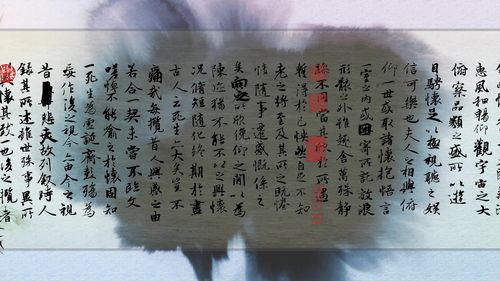 惠風和暢仰觀宇宙之大
俯察品類之盛所以遊
目騁懷足以極視聽之娛
信可樂也夫人之相與俯
仰一世或取諸懷抱悟言
一室之内或因寄所託放浪
形骸之外雖趣舍萬殊靜
躁不同當其欣於所遇
暫得於己怏然自足不知
老之將至及其所之既惓
情隨事遷感慨係之
矣向之所欣俛仰之間以為
陳迹猶不能不以之興懷
況脩短隨化終期於盡
古人云死生亦大矣豈不
痛哉每攬昔人興感之由
若合一契未嘗不臨文
嗟悼不能喻之於懷固知
一死生為虛誕齊彭殤為
妄作後之視今亦由今之視
昔悲夫故列叙時人
錄其所述雖世殊事異所
以興懷其致一也後之攬者